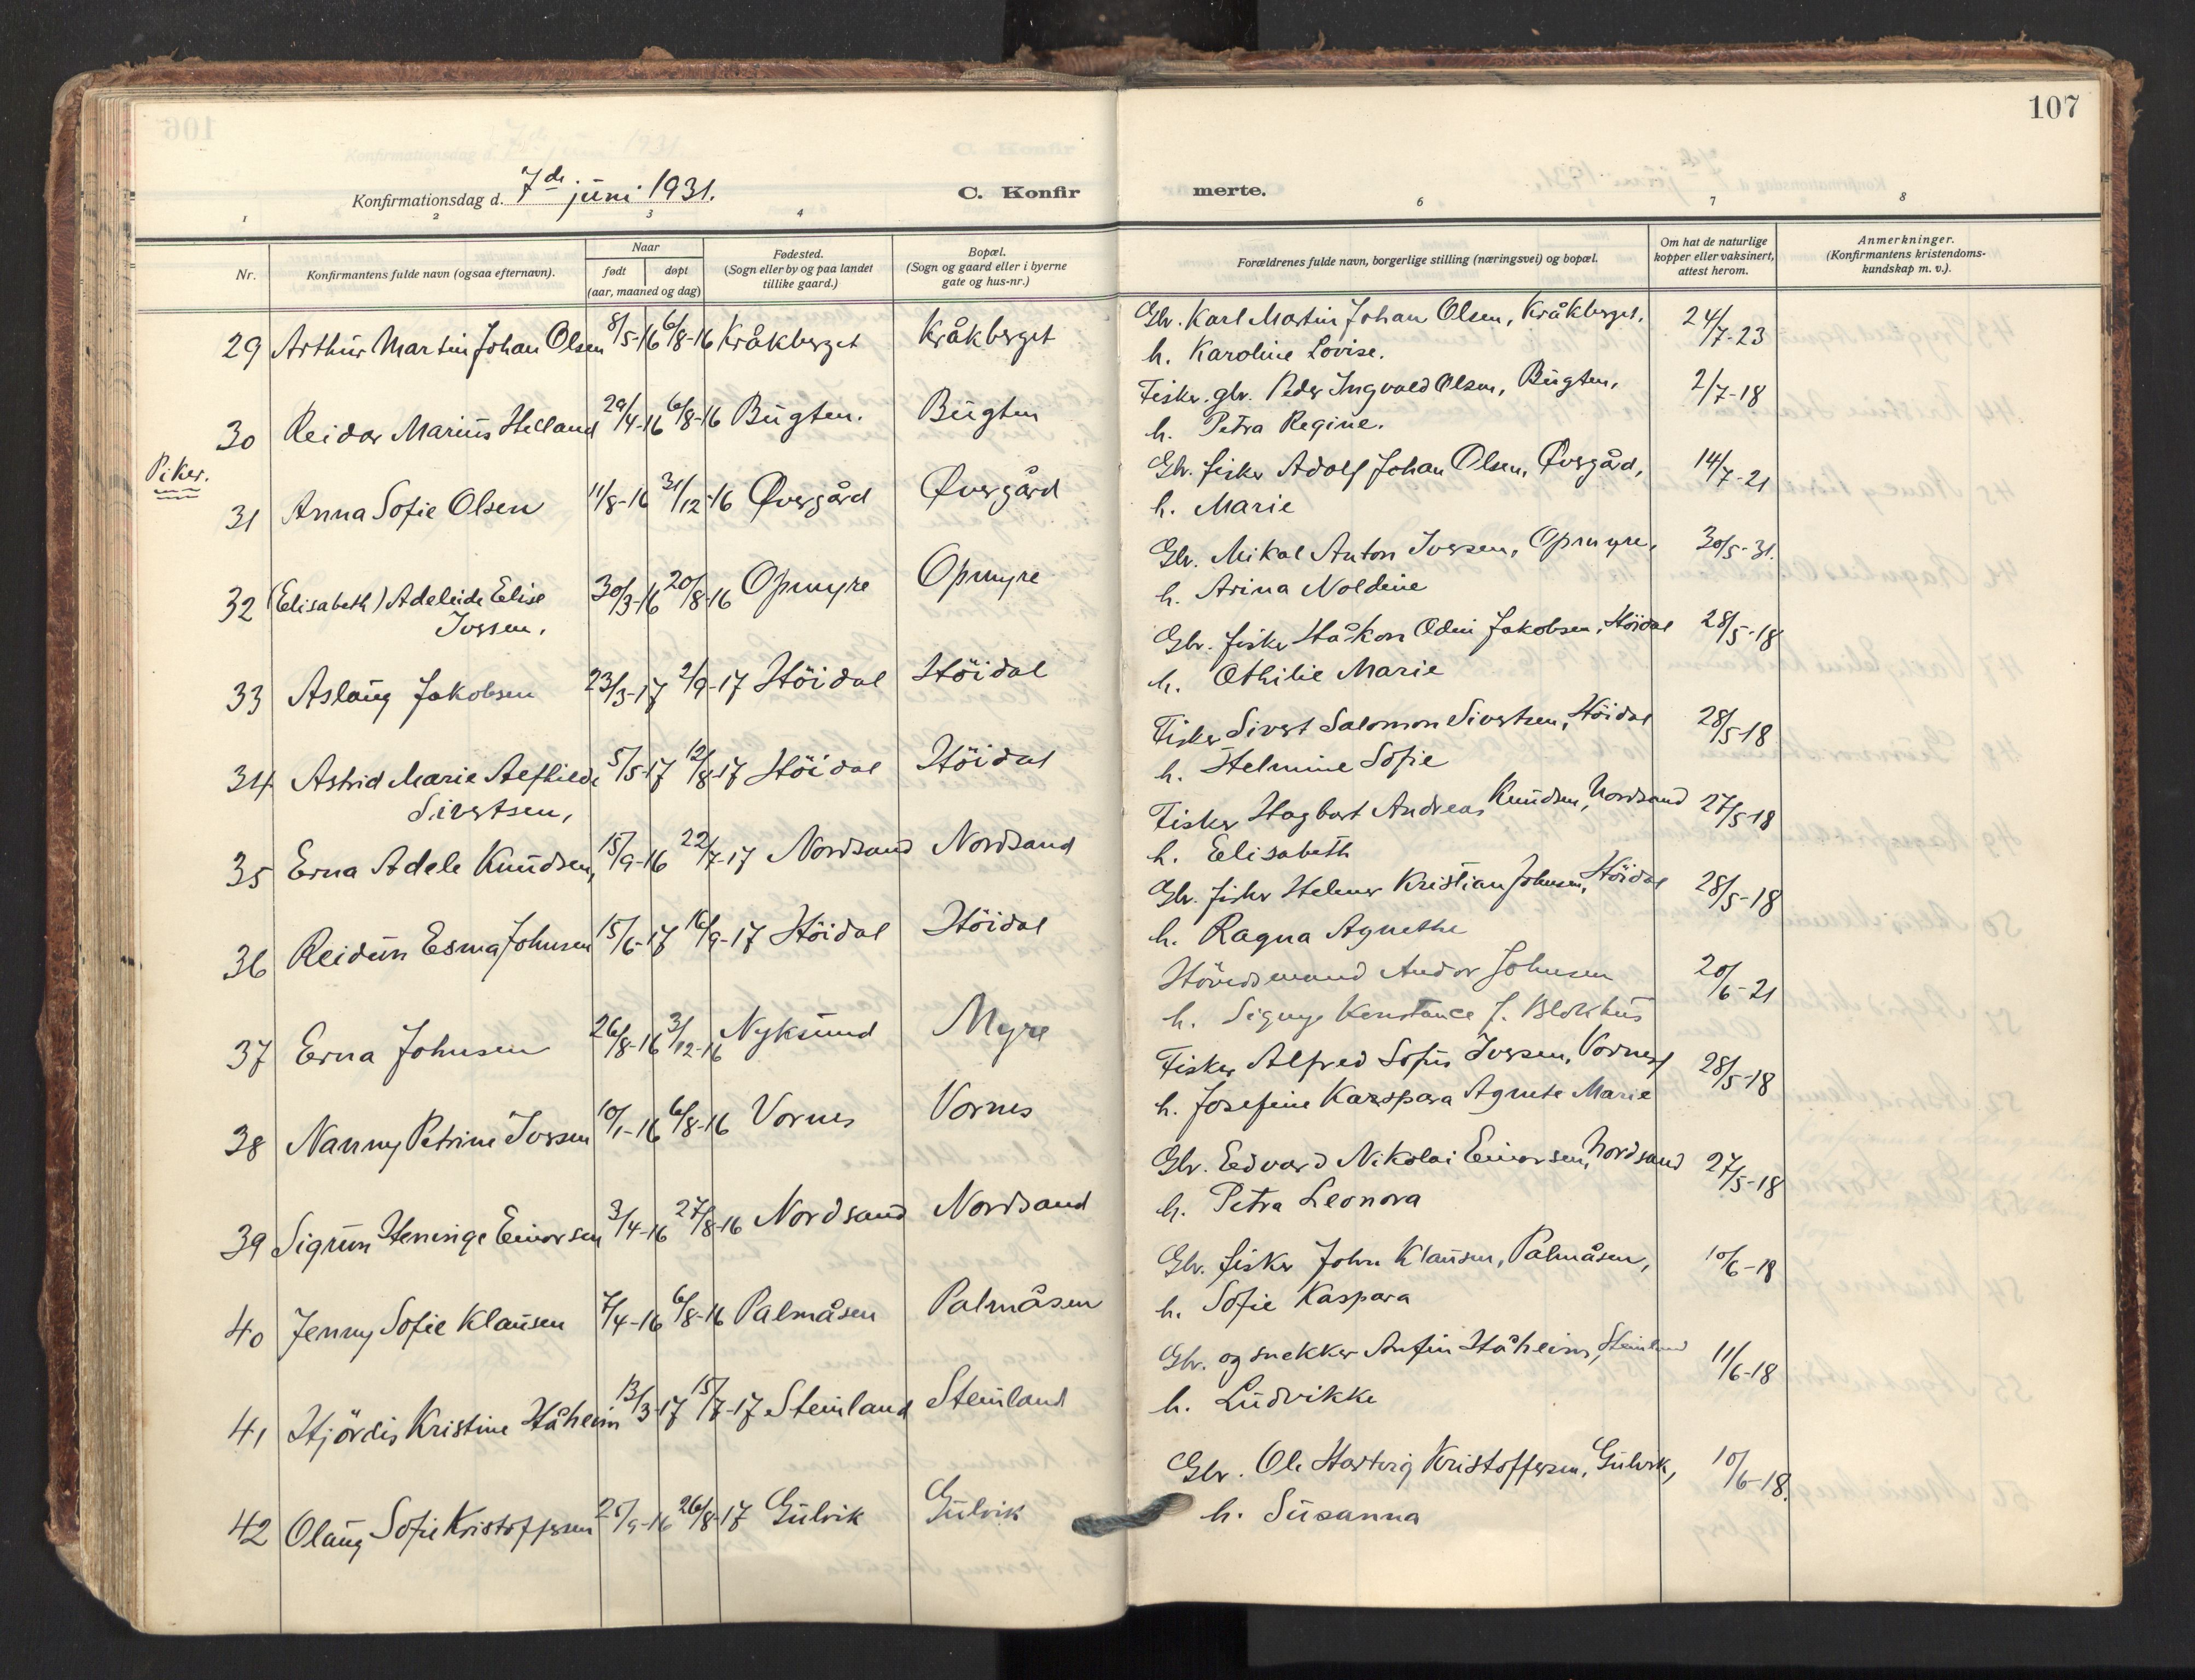 107
Konfirmationsdag d. 7de juni 1931.
C. Konfirmerte.
1 2 3 4 6 7 8
Nr.
Konfirmantens fulde navn (ogsaa efternavn).
Naar
født døpt
(aar, maaned og dag)
Fødested.
(Sogn eller by og paa landet
tillike gaard.)
Bopæl.
(Sogn og gaard eller i byerne
gate og hus-nr.)
Forældrenes fulde navn, borgerlige stilling (næringsvei) og bopæl.
Om hat de naturlige
kopper eller vaksinert,
attest herom.
Anmerkninger.
(Konfirmantens kristendoms-
kundskap m. v.).
29 Arthur Martin Johan Olsen 8/5-16 6/8-16 Kråkberget Kråkberget Gbr. Karl Martin Johan Olsen, Kråkberget. 24/7-23
h. Karoline Lovise.
30 Reidar Marius Helland 29/4-16 6/8-16 Bugten. Bugten Fisker. gbr. Peder Ingvald Olsen, Bugten, 2/7-18
h. Petra Regine.
Piker.
31 Anna Sofie Olsen 11/8-16 31/12-16 Øvergård Øvergård Gbr. fisker Adolf Johan Olsen, Øvergård, 14/7-21
h. Marie
32 (Elisabeth) Adeleide Elise 30/3-16 20/8-16 Opmyre Opmyre Gbr. Mikal Anton Iversen, Opmyre, 30/5-31.
Iversen. h. Arina Noldine
33 Aslaug Jakobsen 23/3-17 2/9-17 Höidal Höidal Gbr. fisker Håkon Odin Jakobsen, Höidal 28/5-18
h. Othilie Marie
34 Astrid Marie Alfhilde 5/5-17 12/8-17 Höidal Höidal Fisker Sivert Salomon Sivertsen, Höidal 28/5-18
Sivertsen, h. Helmine Sofie
35 Erna Adele Knudsen, 15/9-16 22/7-17 Nordsand Nordsand Fisker Hagbart Andreas Knudsen, Nordsand 27/5-18
h. Elisabeth
36 Reidun Esma Johnsen 15/6-17 16/9-17 Höidal Höidal Gbr. fisker Helmer Kristian Johnsen, Höidal 28/5-18
h. Ragna Agnethe
37 Erna Johnsen 26/8-16 3/12-16 Nyksund Myre Hövedsmand Andor Johnsen 20/6-21
h. Signy Konstance J. Blokhus
38 Nanny Petrine Iversen 10/1-16 6/8-16 Vornes Vornes Fisker Alfred Sofus Iversen, Vornes 28/5-18
h. Josefine Karspara Agnete Marie
39 Sigrun Heninge Einorsen 3/4-16 27/8-16 Nordsand Nordsand Gbr. Edvard Nikolai Einorsen, Nordsand 27/5-18
h. Petra Leonora
40 Jenny Sofie Klausen 7/4-16 6/8-16 Palmåsen Palmåsen Gbr. fisker John Klausen, Palmåsen, 10/6-18
h. Sofie Kaspara
41 Hjördis Kristine Håheim 13/3-17 15/7-17 Steinland Steinland Gbr. og snekker Anfin Håheim, Steinland 11/6-18
h. Ludvikke
42 Olaug Sofie Kristoffersen 25/9-16 26/8-17 Gulvik Gulvik Gbr. Ole Hartvig Kristoffersen, Gulvik, 10/6-18.
h. Susanna